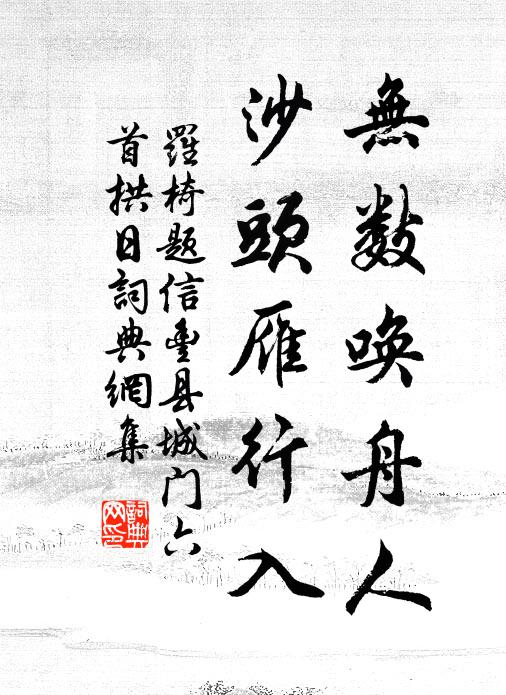 無數唤舟人
沙頭雁行入
羅椅题信豐县城门六
首拱日詞典網集
詞典
网印